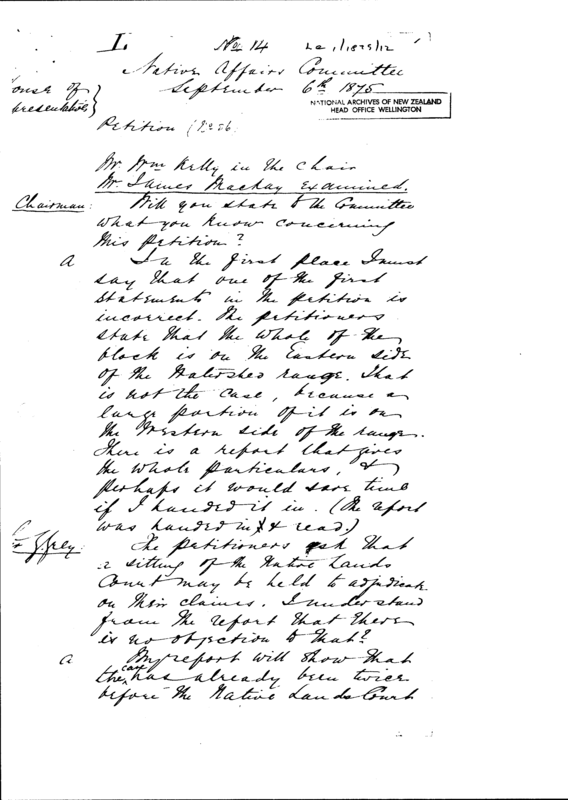 L No 14 Le 1/1875/12
Native Affairs Committee
ouse of
presentatives } September 6th 1875
NATIONAL ARCHIVES OF NEW ZEALAND
HEAD OFFICE WELLINGTON
Petition
Mr. Wm Kelly in the Chair
Mr. James Mackay Examined.
Chairman: Will you state to the Committee
what you know concerning
this petition?
A In the first place I must
say that one of the first
statements in the petition is
incorrect. The petitioners
state that the whole of the
block is on the Eastern side
of the Watershed range. That
is not the case, because a
large portion of it is on
the Western side of the range.
There is a report that gives
the whole particulars, &
perhaps it would save time
if I handed it in. (The report
was handed in & read.)
G Grey: The petitioners ask that
a sitting of the Native Lands
Court may be held to adjudicate
on their claims. I understand
from the report that there
is no objection to that?
A My report will show that
the case has already been twice
before the Native Lands Court